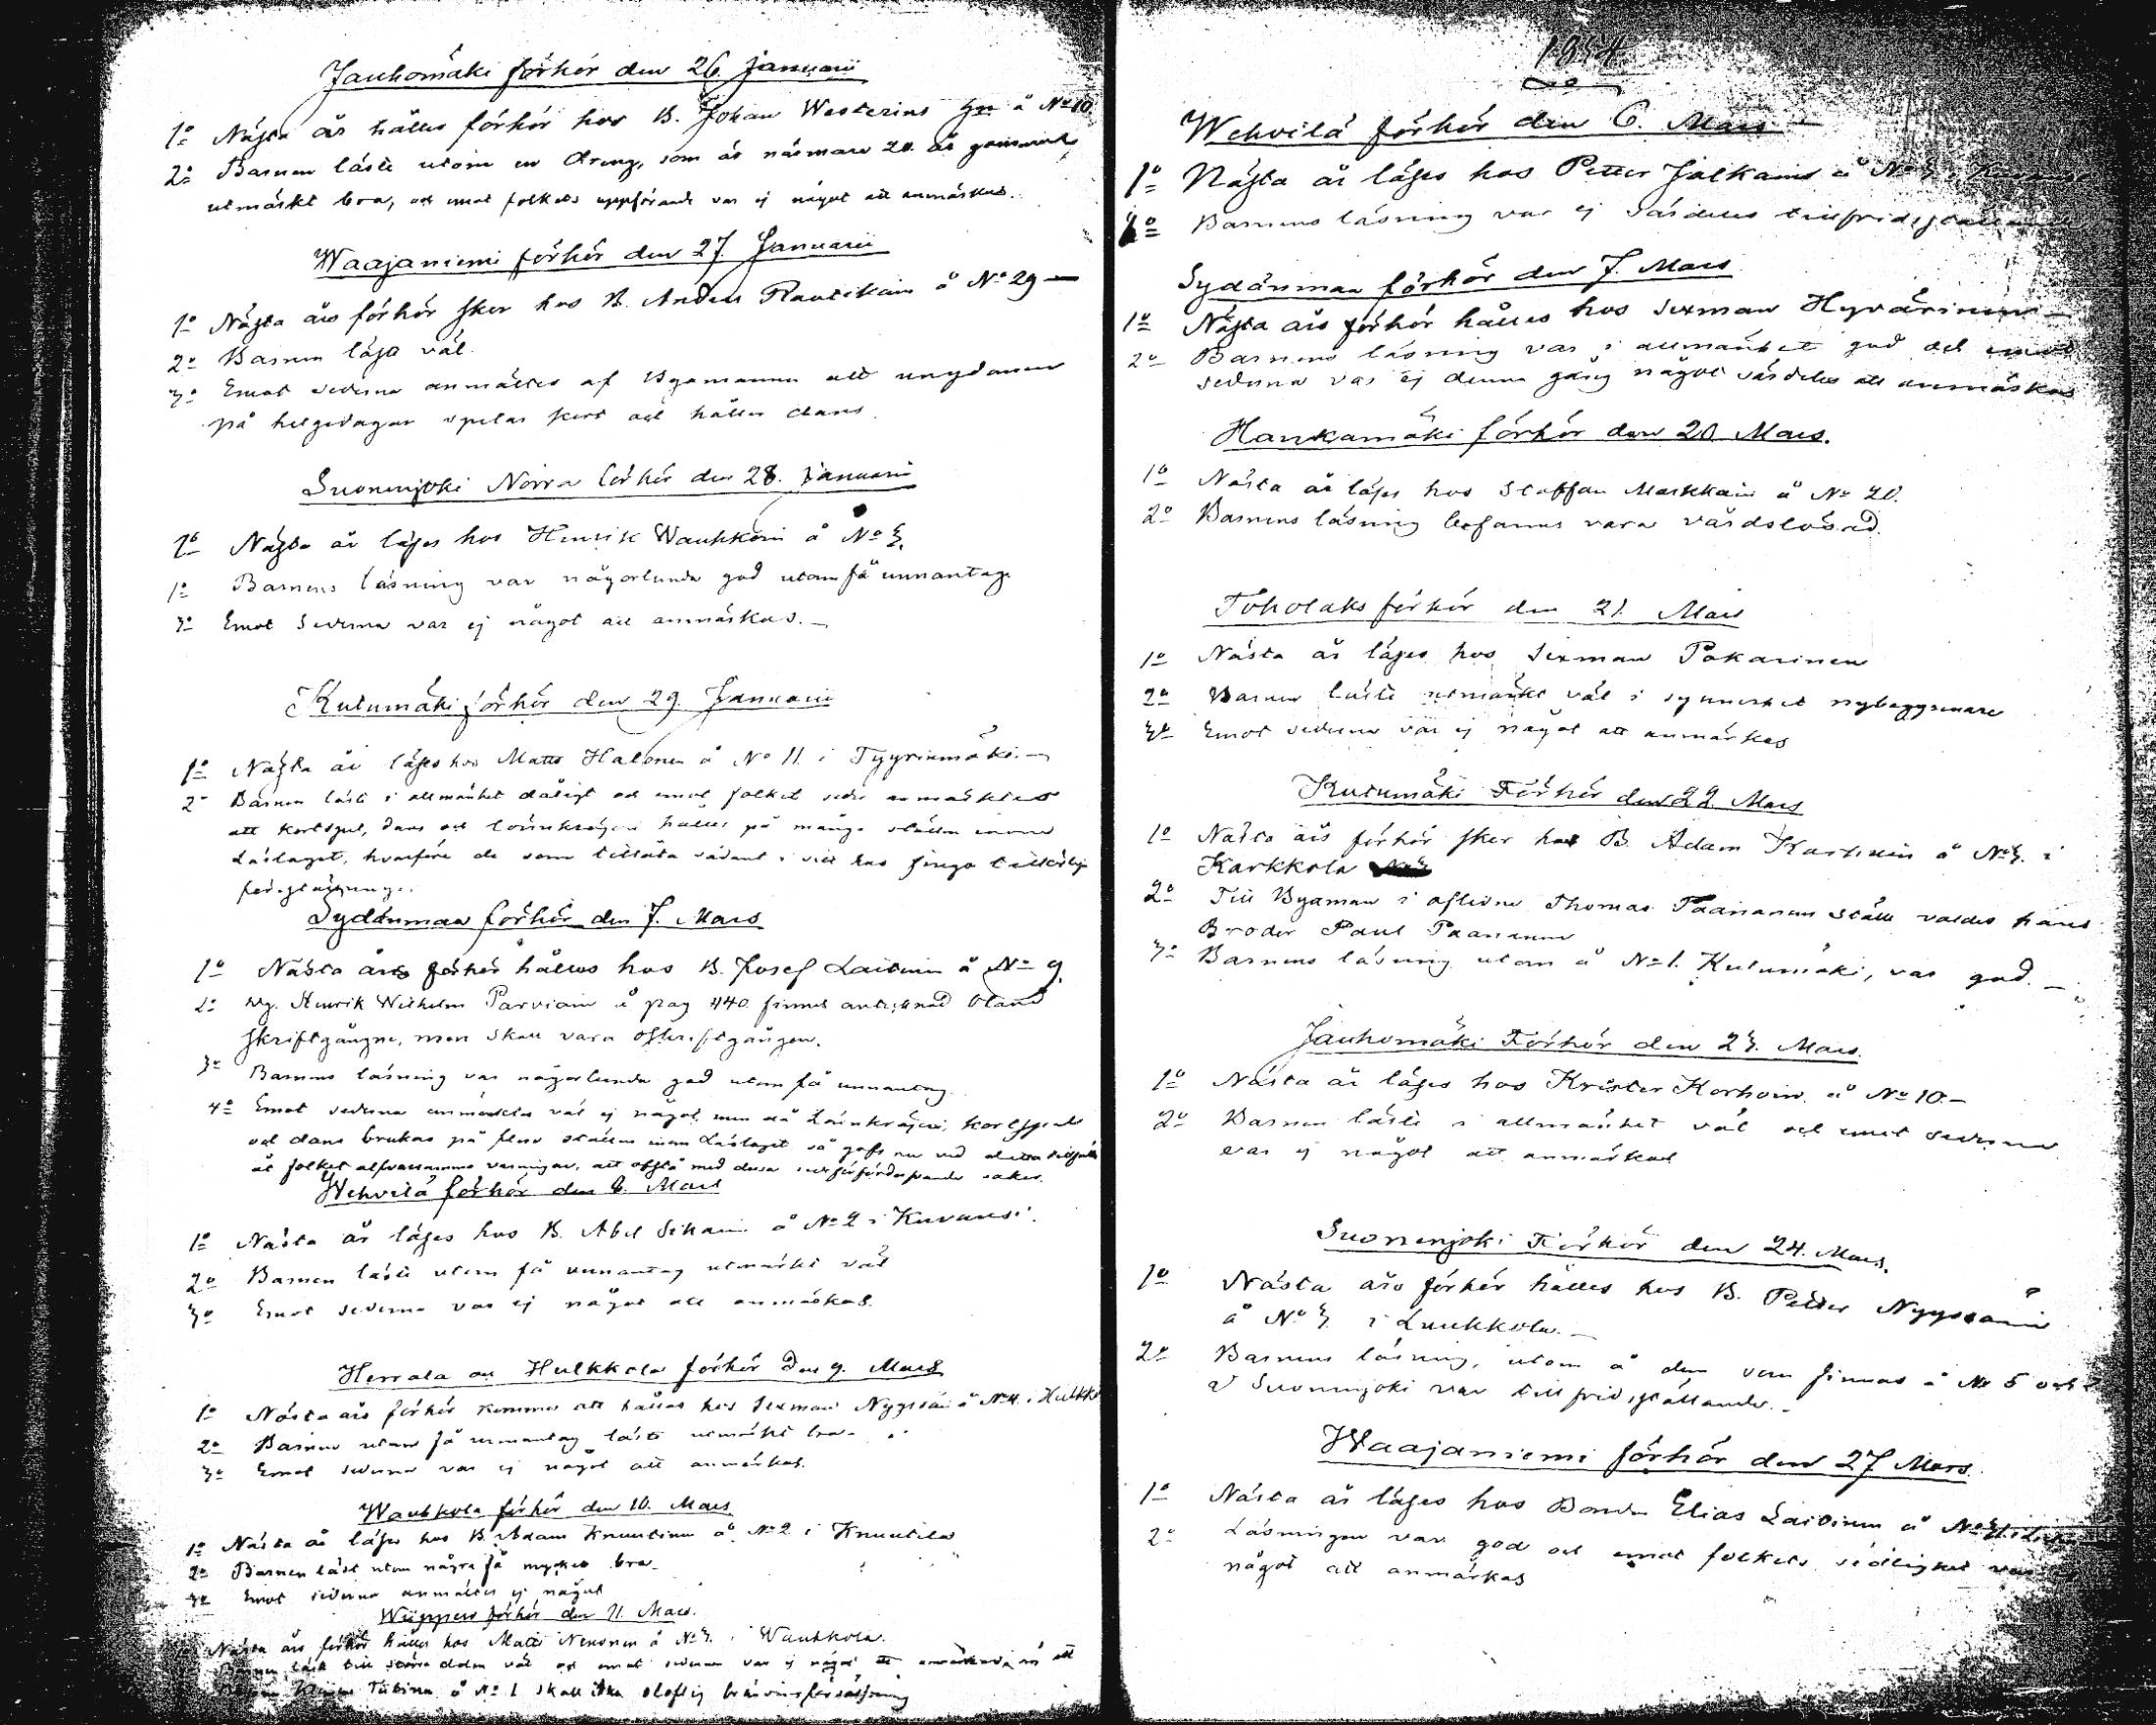 Jauhomäki förhör den 26. Januarii
1o Nästa år hålles förhör hos B. Johan Westerins å No 10.
2o Barnen läste utom en dreng, som är närmare 20. år gammal,
utmärkt bra, och emot folkets uppförande var ej något att anmärkas.
Waajaniemi förhör den 27. Januarii
1o Nästa års förhör sker hos B. Anders Rautikain å No 29 —
2o Barnen läsa väl.
3o Emot sederna anmältes af Byamannen att ungdomen
på helgedagar spelar kort och håller dans.
Suonenjoki Norra förhör den 28. Januarii
1o Nästa år läses hos Henrik Wauhkoin å No 3.
1o Barnens läsning var någorlunda god utom få unnantag
3o Emot sederna var ej något att anmärkas. —
Kutumäki förhör den 29. Januarii
1o Nästa år läses hos Matts Halonen å No 11. i Tyyrinmäki. —
2o Barnen läste i allmänhet dåligt och emot folkets seder anmärktes
att kortspel, dans och lönnkrögeri hålles på många ställen inom
Läslaget, hvarföre de som tillåta sådant i sitt hus finge
Sydänmaa förhör den 7. Mars
1o Nästa års förhör hålles hos B. Josef Laitinen å No 9.
2o Dg. Henrik Wilhelm Parviain å pag 440. finnes antecknad bland
skriftgångne, men skall vara oskriftgången.
3o Barnens läsning var någorlunda god utom få unnantag
4o Emot sederna anmärktes väl ej något, men då Lönnkrögeri, kortspel
och dans brukas på flere ställen inom Läslaget så gafs nu vid detta tillfälle
åt folket alfvarsamma varningar, att afstå med dessa sederförderfvande saker.
Wehvilä förhör den 8. Mars
1o Nästa år läses hos B. Abel Sikain å No 2 i Kuvansi.
2o Barnen läste utom få unnantag utmärkt väl
3o Emot sederna var ej något att anmärkas.
Herrala och Hulkkola förhör den 9. Mars
1o Nästa års förhör kommer att hållas hos Sexman Nyyssöin å No 4. i
2o Barnen utom få unnantag läste utmärkt bra.
3o Emot sederna var ej något att anmärkas.
Wauhkola förhör den 10. Mars
1o Nästa år läses hos B. Adam Knuutinen å No 2 i Knuutila
2o Barnen läste utom några få mycket bra.
3o Emot sederna anmältes ej något
förhör den 11. Mars.
Nästa års förhör hålles hos Matts Nenonen å No 3. i Wauhkola.
Barnen läste till större delen väl och emot sederna var ej något att
å No 1 skall
1854.
Wehvilä förhör den 6. Mars
1o Nästa år läses hos Petter Jalkain å No 3 i
2o Barnens läsning var ej särdeles
Sydänmaa förhör den 7. Mars
1o Nästa års förhör hålles hos Sexman Hyvärinen —
2o Barnens läsning var i allmänhet god och emot
sederna var ej denna gång något särdeles att anmärkas
Haukamäki förhör den 20 Mars.
1o Nästa år läses hos Staffan Markkain å No 20.
2o Barnens läsning befanns vara vårdslösad.
Toholaks förhör den 21. Mars
1o Nästa år läses hos Sexman Pakarinen
2o Barnen läste utmärkt väl i synnerhet nybegynnare
3o Emot sederna var ej något att anmärkas
Kutumäki Förhör den 22. Mars
1o Nästa års förhör sker hos B. Adam å No 3. i
Karkkola
2o Till Byaman i aflidne Thomas Paananens ställe valdes hans
Broder Paul Paananen
3o Barnens läsning utom å No 1. Kutumäki, var god. —
Jauhomäki Förhör den 23. Mars.
1o Nästa år läses hos Krister Korhoin å No 10. —
2o Barnen läste i allmänhet väl och emot sederna
var ej något att anmärkas
Suonenjoki Förhör den 24. Mars.
1o Nästa års förhör hålles hos B. Petter Nyyssöin
å No 3. i Luukkola. —
2o Barnens läsning, utom å dem som finnas å No 5 och
Suonenjoki var tillfridsställande. —
Waajaniemi förhör den 27 Mars.
1o Nästa år läses hos Bonden Elias Laitinen å
2o Läsningen var god och emot folkets sedlighet var
något att anmärkas